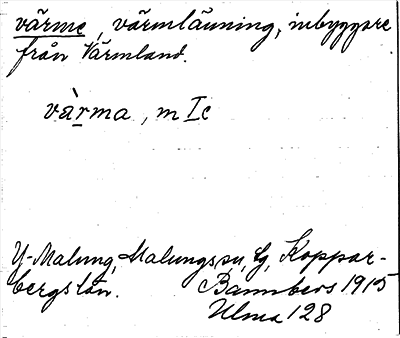 värme, värmlänning, inbyggare
från Värmland.
vàrma, m Ic
Y-Malung, Malungs
bergs län. Bannbers 1915
Ulma 128